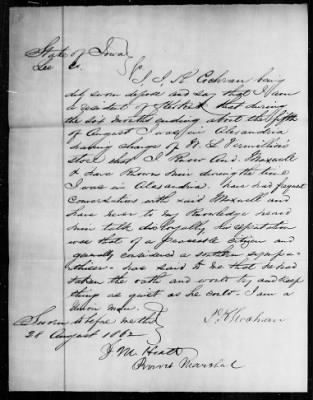 State of Iowa
Lee Co.
I J K Cochran being
duly sworn depose and say that I am
a resident of Keokuk that during
the six months ending about the fifth
of August I was in Alexandria
having charge of W. L. Vermillions
store that I know And. Maxwell
& have known him during the time
I was in Alexandria. have had frequent
conversations with said Maxwell and
have never to my knowledge heard
him talk disloyally, his reputation
was that of a peaceable citizen and
generally considered a southern sympa-
thiser - has said to me that he had
taken the oath and would try and keep
things as quiet as he could. I am a
Union man.
J K Cochran
Sworn to before me this
28 August 1862
J M Hiatt
Provost Marshal